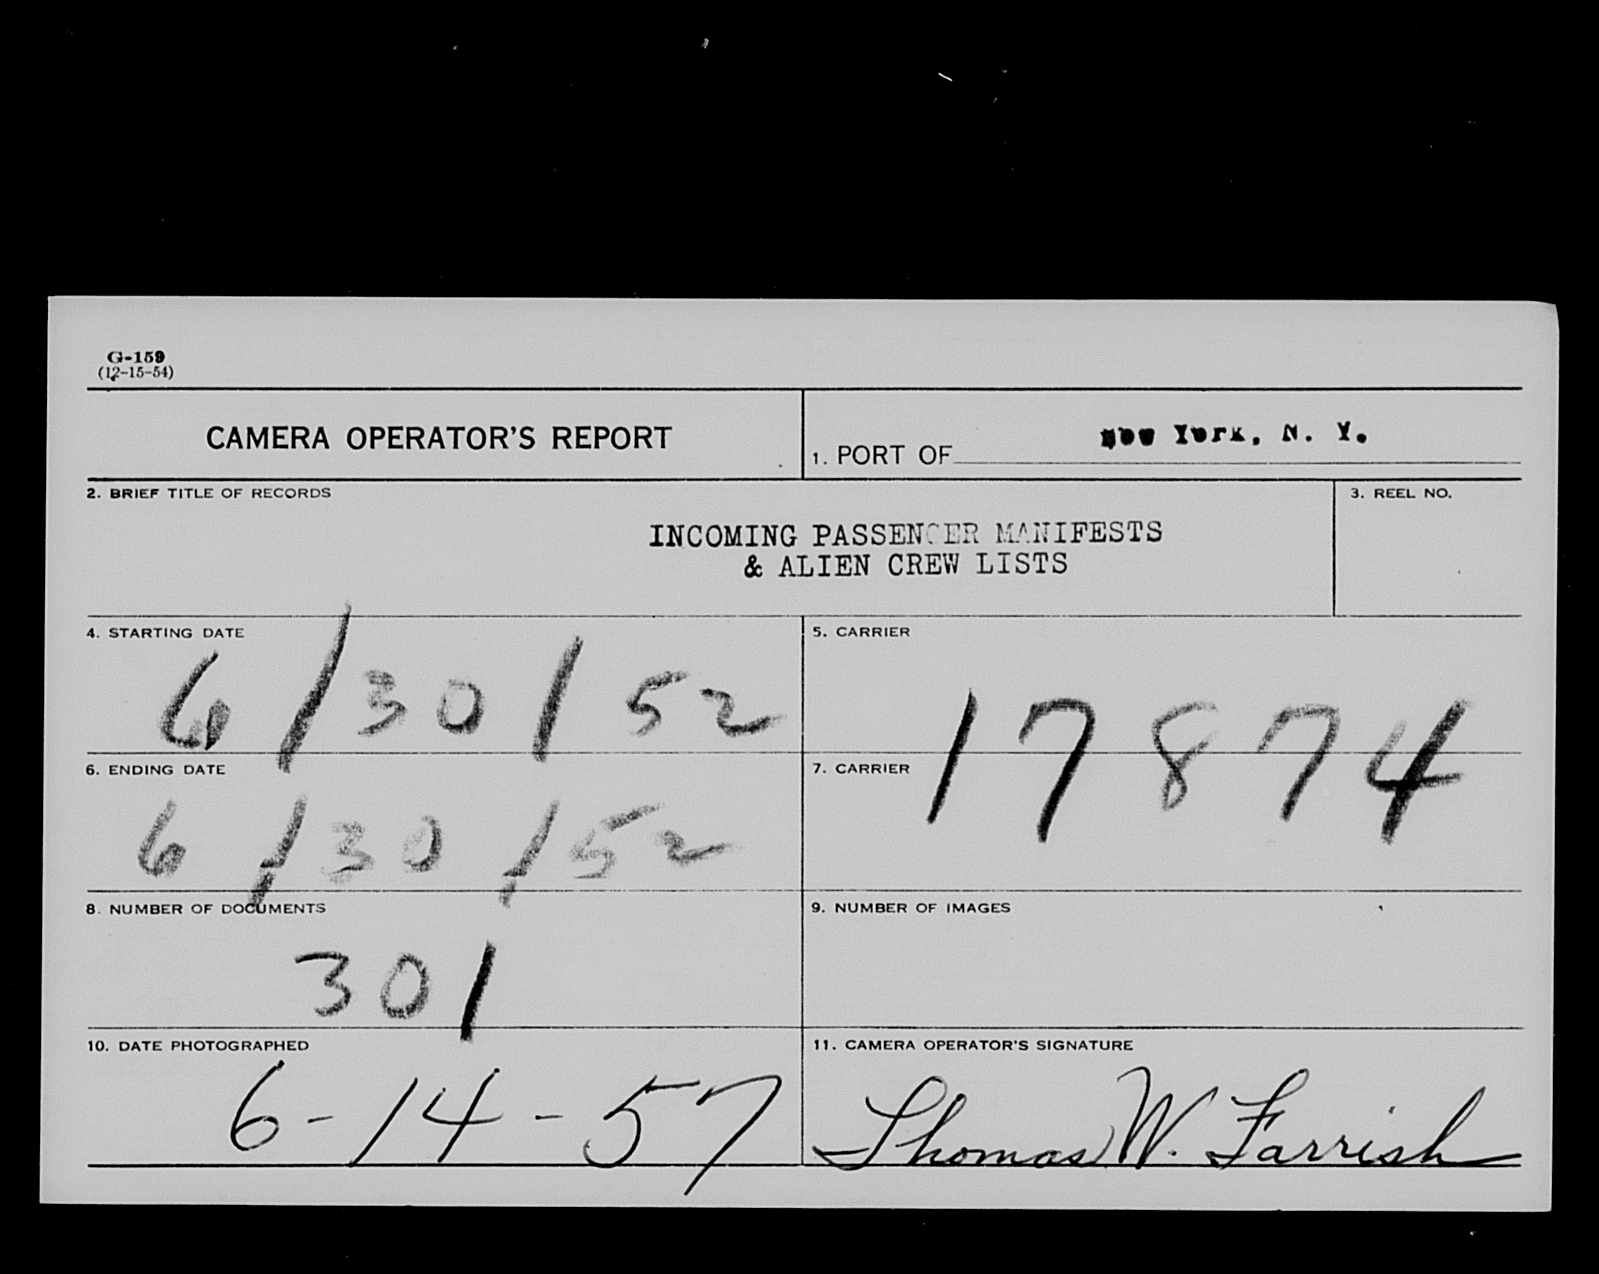 G-159
(12-15-54)
CAMERA OPERATOR'S REPORT
1. PORT OF New York, N. Y.
2. BRIEF TITLE OF RECORDS
INCOMING PASSENGER MANIFESTS
& ALIEN CREW LISTS
3. REEL NO.
4. STARTING DATE
6/30/52
5. CARRIER
17874
6. ENDING DATE
6/30/52
7. CARRIER
8. NUMBER OF DOCUMENTS
301
9. NUMBER OF IMAGES
10. DATE PHOTOGRAPHED
6-14-57
11. CAMERA OPERATOR'S SIGNATURE
Thomas W. Farrish